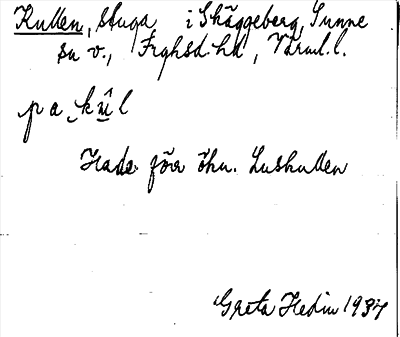 Kullen, stuga i Skäggeberg, Sunne
sn v., Frykhsd. hd, Värml. l.
pa kul
Hade förr ökn. Luskullen
Greta Hedin 1937